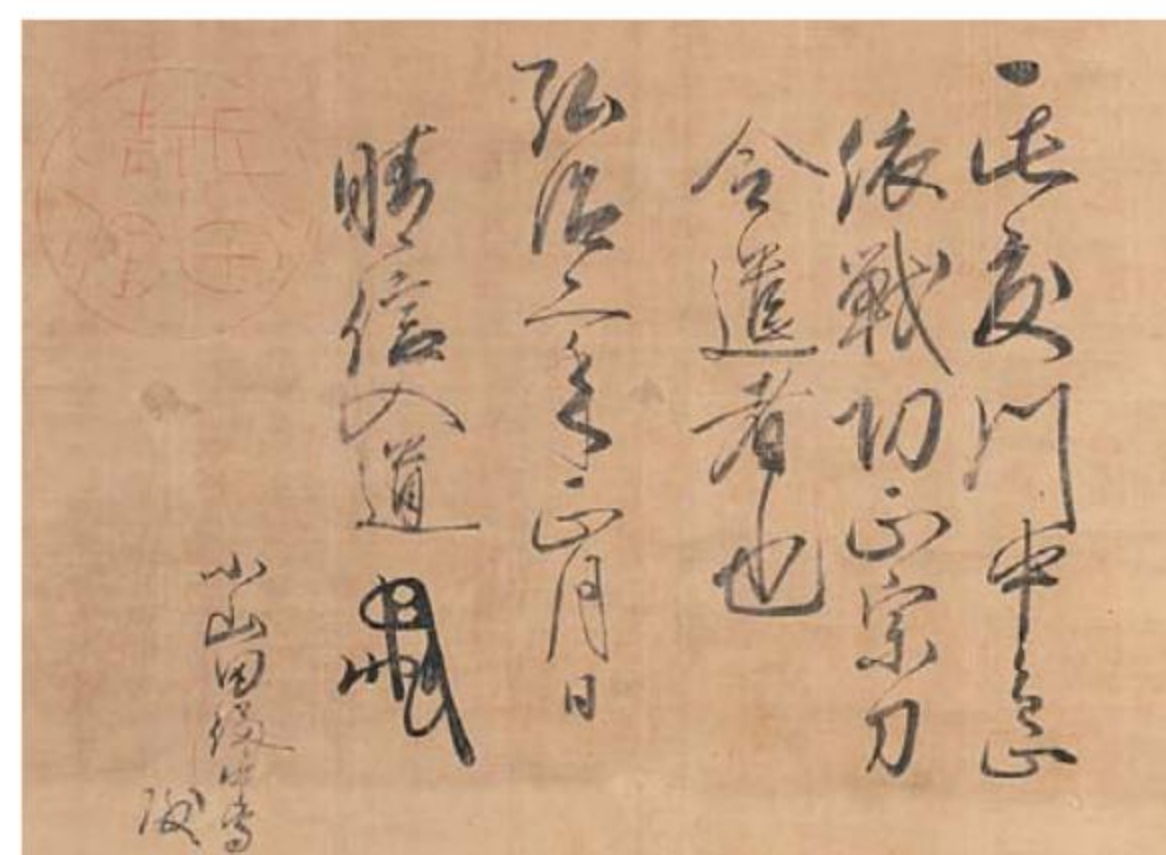 一此度川中島
依戦功正宗刀
令遣者也
弘治二年正月日
晴信入道
小山田備中守
殿